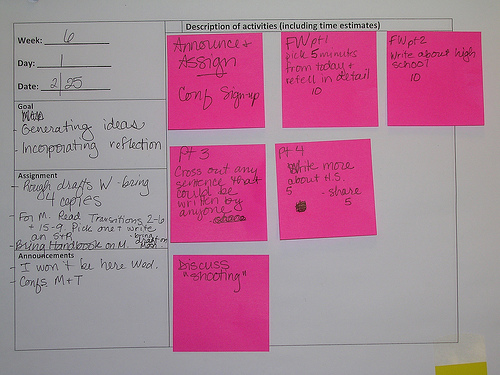 Description of activities (including time estimates)
Week: 6
Day: 1
Date: 2/25
Goal
- Generating ideas
- Incorporating reflection
Assignment
- Rough drafts W - bring
4 copies
- For M. Read Transitions 2-6
+ 15-9. Pick one + write
an
- bring
- Bring Handbook on M.
Announcements
- I won't be here Wed.
- Confs M + T
Announce +
Assign
Conf Sign-up
FW pt 1
pick 5 minutes
from today +
retell in detail
10
FW pt 2
Write about high
school
10
Pt 3
Cross out any
sentence that
could be
written by
anyone.
Pt 4
Write more
about H.S.
5 - share
5
Discuss
"Shooting"